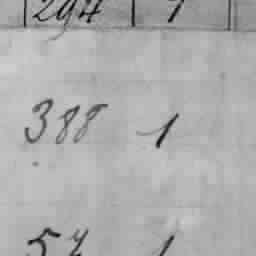 294 1
388 1
57 1